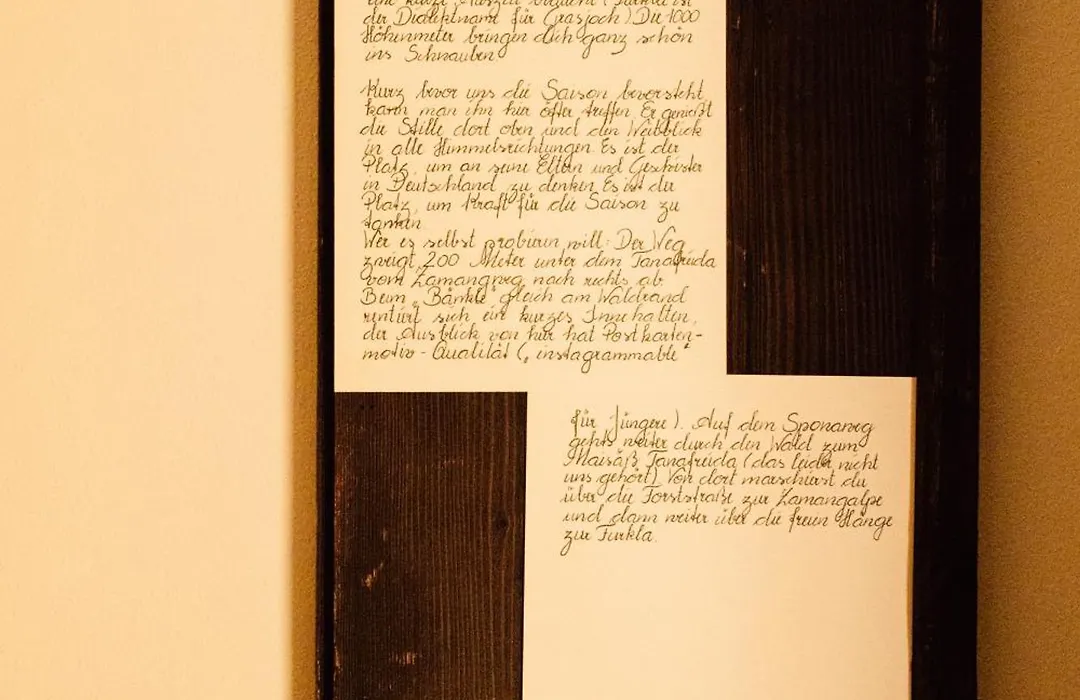 eine kurze Auszeit braucht (Furkla ist
der Dialektname für Grasjoch). Die 1000
Höhenmeter bringen dich ganz schön
ins Schnauben.
Kurz bevor uns die Saison bevorsteht,
kann man ihn hier öfter treffen. Er genießt
die Stille dort oben und den Weitblick
in alle Himmelsrichtungen. Es ist der
Platz, um an seine Eltern und Geschwister
in Deutschland zu denken. Es ist der
Platz, um Kraft für die Saison zu
tanken.
Wer es selbst probieren will: Der Weg
zweigt 200 Meter unter dem Tanafreida
vom Zamangweg nach rechts ab.
Beim „Bänkle" gleich am Waldrand
rentiert sich ein kurzes Innehalten,
der Ausblick von hier hat Postkarten-
motiv-Qualität („instagrammable"
für Jüngere). Auf dem Sponaweg
gehts weiter durch den Wald zum
Maisäß Tanafreida (das leider nicht
uns gehört). Von dort marschierst du
über die Forststraße zur Zamangalpe
und dann weiter über die freien Hänge
zur Furkla.